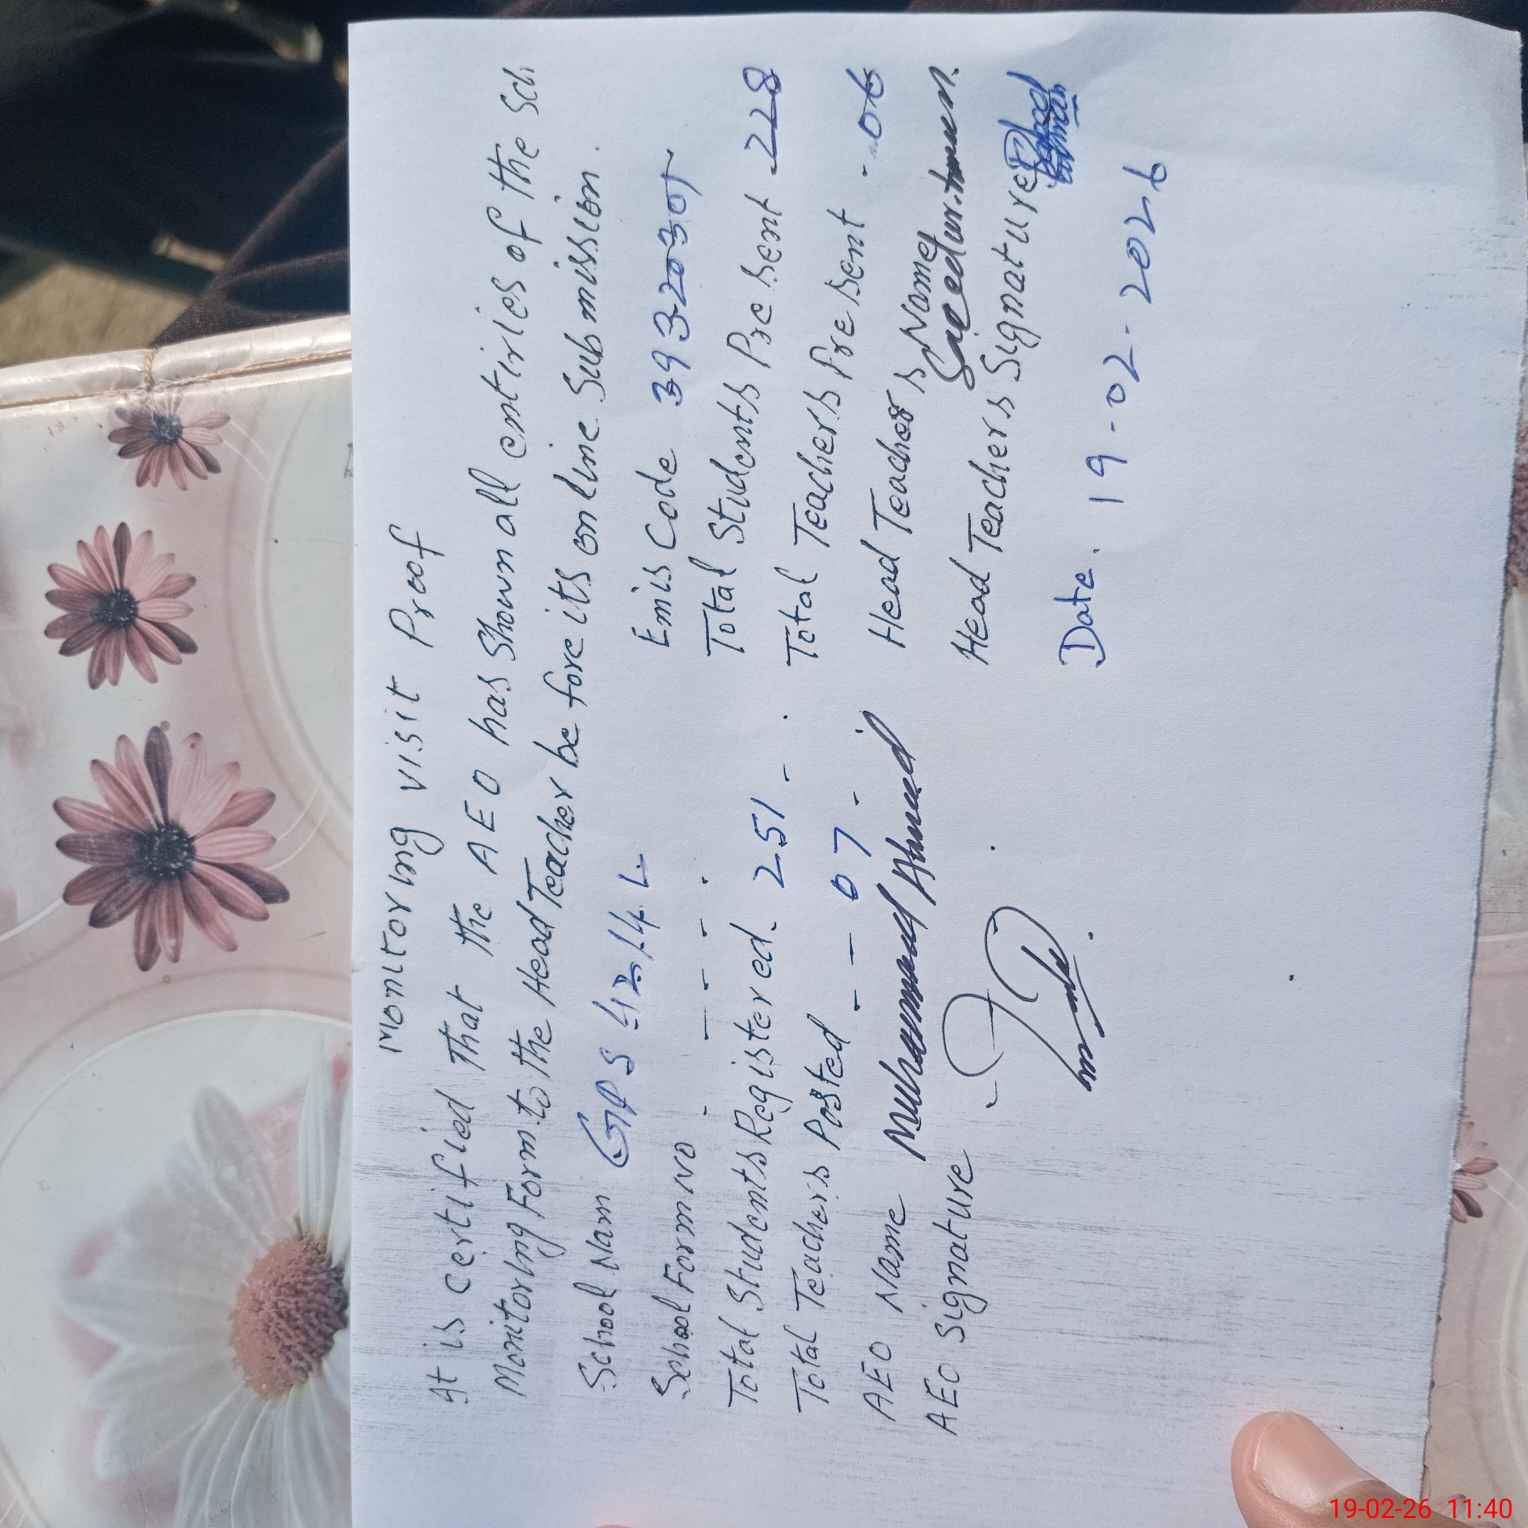 Monitoring visit Proof
It is certified That the AEO has shown all entiries of the Sch.
Monitoring Form to the Head Teacher before its online Submission.
School Nam GPS 42-14 L
Emis Code 39320305
School Form No - - - - .
Total Students Registered. 251 - .
Total Students Present 228
Total Teachers Posted - - 07 -
Total Teachers Present - 06
AEO Name Muhammad Ahmed
Head Teacher's Name Saeedur
AEO Signature
Head Teachers Signature
Date. 19-02-2026
19-02-26 11:40